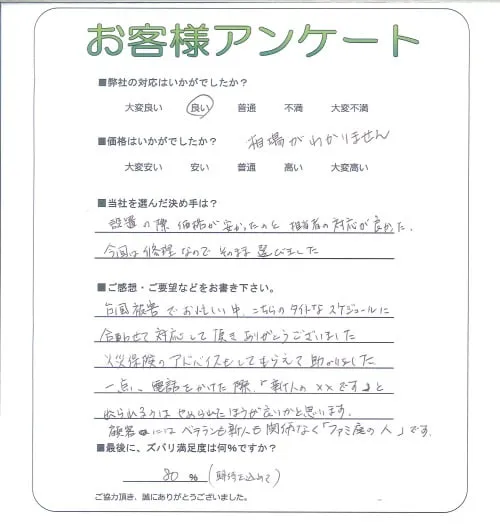 お客様アンケート
■弊社の対応はいかがでしたか?
大変良い 良い 普通 不満 大変不満
■価格はいかがでしたか? 相場がわかりません
大変安い 安い 普通 高い 大変高い
■当社を選んだ決め手は?
設置の際価格が安かったのと担当者の対応が良かった。
今回は修理なのでそのまま選びました
■ご感想・ご要望などをお書き下さい。
台風被害でお忙しい中、こちらのタイトなスケジュールに
合わせて対応して頂きありがとうございました
火災保険のアドバイスもしてもらえて助かりました
一点、電話をかけた際、「新人の××です」と
名のられるのはやめられたほうが良いかと思います。
顧客にはベテランも新人も関係なく「ファミ庭の人」です。
■最後に、ズバリ満足度は何%ですか?
80 % (期待を込めて)
ご協力頂き、誠にありがとうございました。